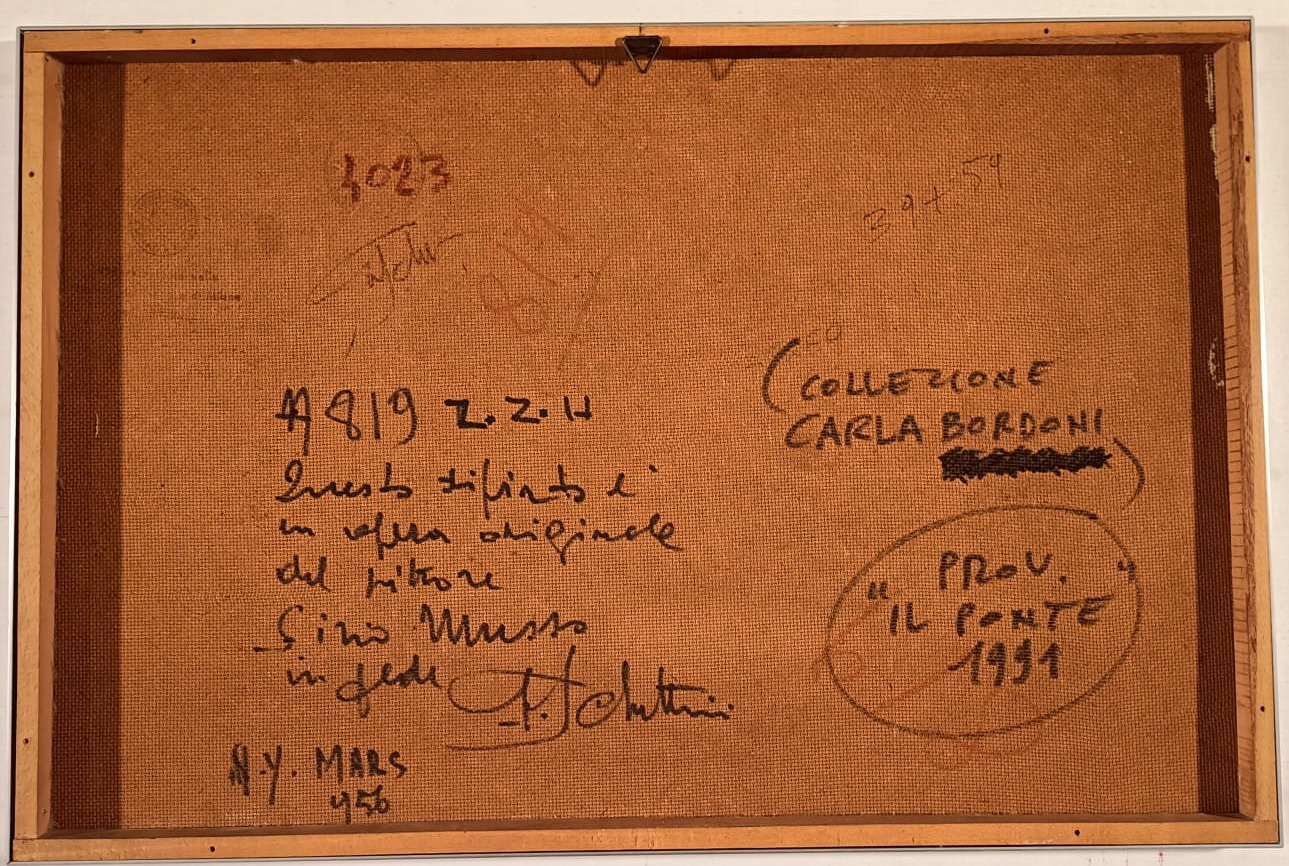 1023
29+59
A 819 Z.Z.H
Questo dipinto è
un opera originale
del pittore
Sirio Musso
in fede
N.Y. MARS
956
(COLLEZIONE
CARLA BORDONI
)
PROV.
"IL PONTE"
1991